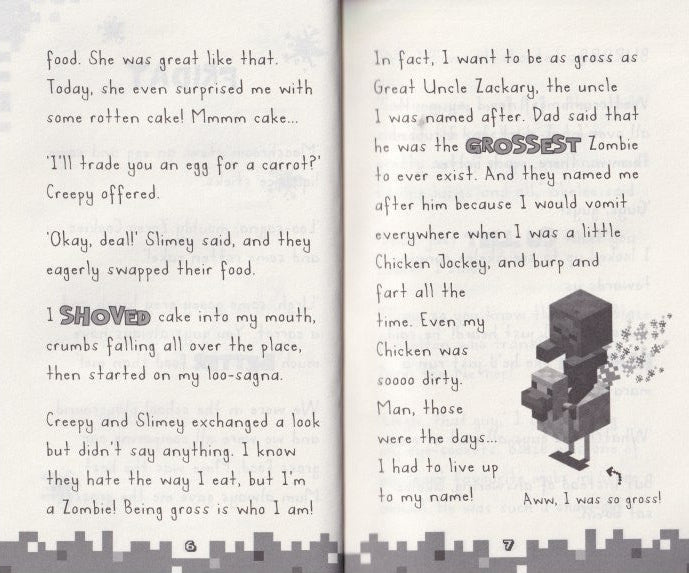 food. She was great like that.
Today, she even surprised me with
some rotten cake! Mmmm cake...
'I'll trade you an egg for a carrot?'
Creepy offered.
'Okay, deal!' Slimey said, and they
eagerly swapped their food.
I SHOVED cake into my mouth,
crumbs falling all over the place,
then started on my loo-sagna.
Creepy and Slimey exchanged a look
but didn't say anything. I know
they hate the way I eat, but I'm
a Zombie! Being gross is who I am!
6
In fact, I want to be as gross as
Great Uncle Zackary, the uncle
I was named after. Dad said that
he was the GROSSEST Zombie
to ever exist. And they named me
after him because I would vomit
everywhere when I was a little
Chicken Jockey, and burp and
fart all the
time. Even my
Chicken was
soooo dirty.
Man, those
were the days...
I had to live up
to my name!
Aww, I was so gross!
7